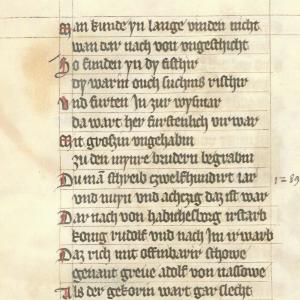 Man kunde yn lange vinden nicht
wan dar nach von vngeschicht
So funden yn dy fischir
dy warin ouch suchins rischir
Vnd furten in zur wysmar
da wart her furstenlich vorwar
Mit groszin vngehabin
zu den mynre brudern begrabin
Du mā schreib czwelfhundirt iar
vnd nuyn vnd achczig daz ist war
1289
Dar nach von habichesborg irstarb
konig rudolf vnd nach im irwarb
Daz rich mit offinbarir schowe
genant greue adolf von nassowe
Als der gekorin wart gar slecht